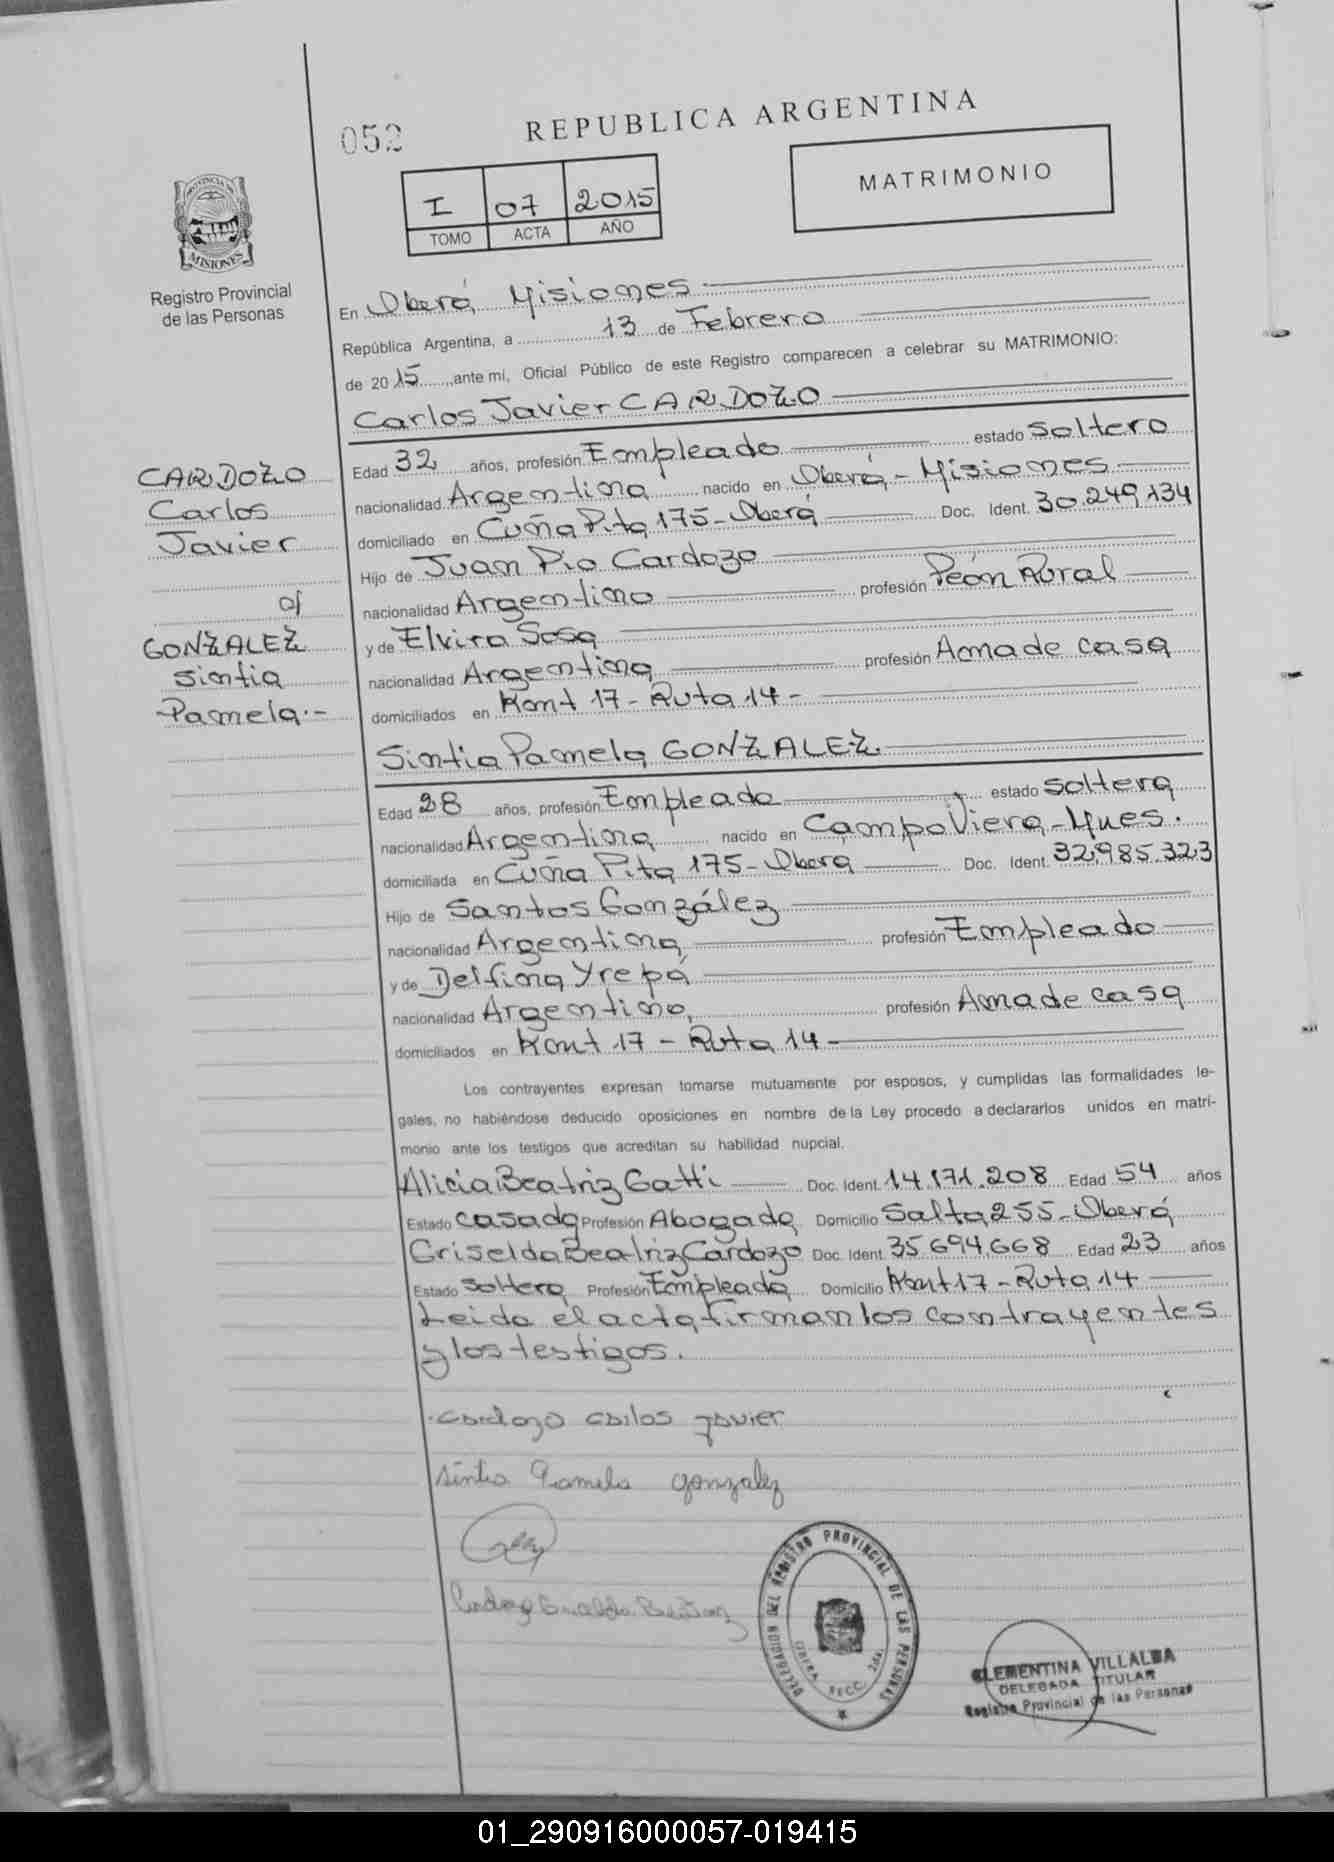 052
REPUBLICA ARGENTINA
I 07 2015
TOMO ACTA AÑO
MATRIMONIO
PROVINCIA DE
MISIONES
Registro Provincial
de las Personas
En Oberá, Misiones
República Argentina, a 13 de Febrero
de 2015, ante mí, Oficial Público de este Registro comparecen a celebrar su MATRIMONIO:
Carlos Javier CARDOZO
Edad 32 años, profesión Empleado estado soltero
nacionalidad Argentina nacido en Oberá - Misiones
domiciliado en Cuña Pita 175 - Oberá Doc. Ident. 30.249.134
Hijo de Juan Pio Cardozo
nacionalidad Argentino profesión Peón Rural
y de Elvira Sosa
nacionalidad Argentina profesión Ama de casa
domiciliados en Kmt 17 - Ruta 14 -
CARDOZO
Carlos
Javier
c/
GONZALEZ
Sintia
Pamela.-
Sintia Pamela GONZALEZ
Edad 28 años, profesión Empleada estado soltera
nacionalidad Argentina nacido en Campo Viera - Mnes.
domiciliada en Cuña Pita 175 - Obera Doc. Ident. 32.985.323
Hijo de Santos González
nacionalidad Argentina profesión Empleado
y de Delfina Yrepá
nacionalidad Argentina, profesión Ama de casa
domiciliados en Kmt 17 - Ruta 14 -
Los contrayentes expresan tomarse mutuamente por esposos, y cumplidas las formalidades le-
gales, no habiéndose deducido oposiciones en nombre de la Ley procedo a declararlos unidos en matri-
monio ante los testigos que acreditan su habilidad nupcial.
Alicia Beatriz Gatti Doc. Ident. 14.171.208 Edad 54 años
Estado casada Profesión Abogada Domicilio Salta 255 - Oberá
Griselda Beatriz Cardozo Doc. Ident. 35.694.668 Edad 23 años
Estado soltera Profesión Empleada Domicilio Kmt 17 - Ruta 14
Leida el acta firman los contrayentes
y los testigos.
Cardozo Carlos Javier
Sintia Pamela Gonzalez
DELEGACION DEL REGISTRO PROVINCIAL DE LAS PERSONAS
OBERA SECC. 2da.
CLEMENTINA VILLALBA
DELEGADA TITULAR
Registro Provincial de las Personas
01_290916000057-019415